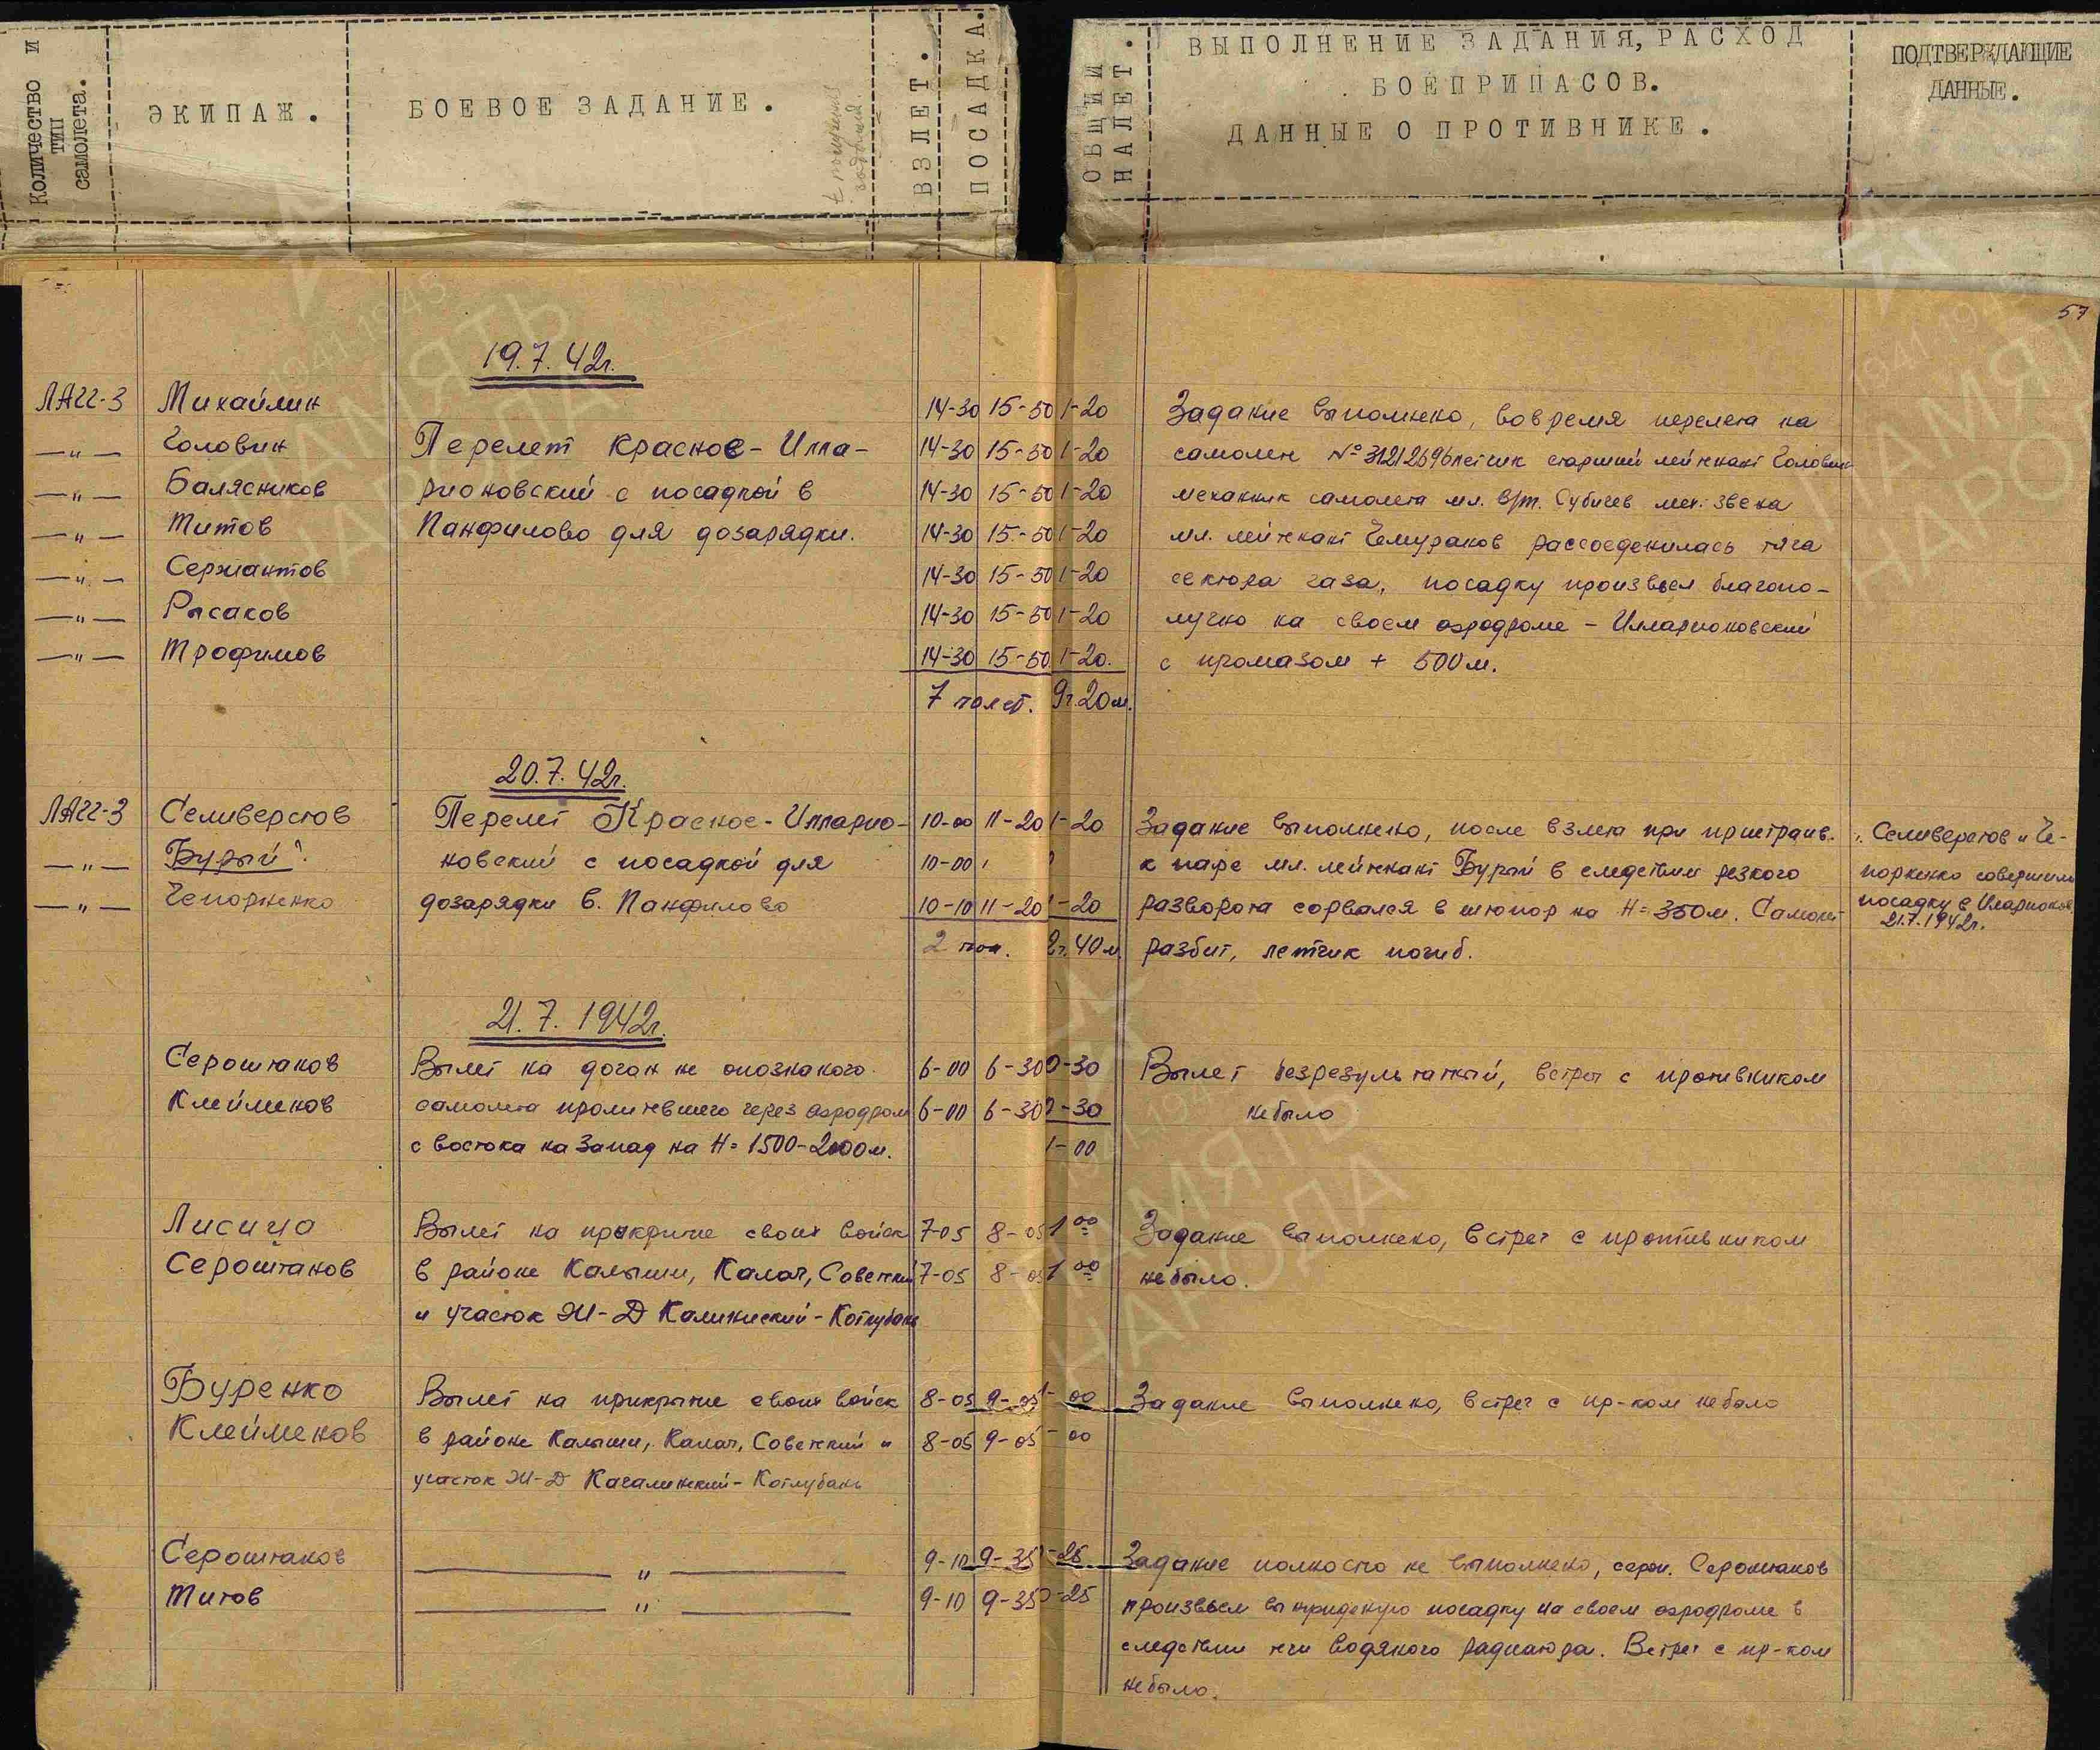 Количество и
тип
самолета.
ЭКИПАЖ.
БОЕВОЕ ЗАДАНИЕ.
ВЗЛЕТ.
ПОСАДКА.
ОБЩИЙ
НАЛЕТ.
ВЫПОЛНЕНИЕ ЗАДАНИЯ, РАСХОД
БОЕПРИПАСОВ.
ДАННЫЕ О ПРОТИВНИКЕ.
ПОДТВЕРЖДАЮЩИЕ
ДАННЫЕ.
57
19.7.42г.
ЛАГГ-3 Михайлин 14-30 15-50 1-20 Задание выполнено, вовремя перелета на
—"— Головин Перелет Красное - Илла- 14-30 15-50 1-20 самолете № 31212696 летчик старший лейтенант Головин
—"— Балясников рионовский с посадкой в 14-30 15-50 1-20 механик самолета мл. в/т. Субичев мех. звена
—"— Титов Панфилово для дозарядки. 14-30 15-50 1-20 мл. лейтенант Чемураков рассоеденилась тяга
—"— Сержантов 14-30 15-50 1-20 сектора газа, посадку произвел благопо-
—"— Рысаков 14-30 15-50 1-20 лучно на своем аэродроме - Илларионовский
—"— Трофимов 14-30 15-50 1-20. с промазом + 500м.
7 полет. 9ч.20м.
20.7.42г.
ЛАГГ-3 Селиверстов Перелет Красное - Илларио- 10-00 11-20 1-20 Задание выполнено, после взлета при пристраив. Селиверстов и Че-
—"— Бурый новский с посадкой для 10-00 к паре мл. лейтенант Бурый в следствии резкого порненко совершили
—"— Чепорненко дозарядки в. Панфилово 10-10 11-20 1-20 разворота сорвался в штопор на H=350м. Самолет посадку в Иларионов.
21.7.1942г.
2 пол. 2ч.40м. разбит, летчик погиб.
21.7.1942г.
Сероштанов Вылет на догон не опознаного 6-00 6-30 0-30 Вылет безрезультатный, встреч с противником
Клейменов самолета пролитевшего через аэродром 6-00 6-30 0-30 небыло
с востока на Запад на H=1500-2000м. 1-00
Лисица Вылет на прикрытие своих войск 7-05 8-05 1 00 Задание выполнено, встреч с противником
Сероштанов в районе Калыши, Калач, Советский 7-05 8-05 1 00 небыло.
и участок Ж-Д Калининский - Котлубань
Буренко Вылет на прикрытие своих войск 8-05 9-05 1-00 Задание выполнено, встреч с пр-ком небыло
Клейменов в районе Калыши, Калач, Советский и 8-05 9-05 -00
участок Ж-Д Качалинский - Котлубань
Сероштанов ——"—— 9-10 9-35 -25 Задание полностю не выполнено, серж. Сероштанов
Титов ——"—— 9-10 9-35 0-25 произвел вынужденую посадку на своем аэродроме в
следствии течи водяного радиатора. Встреч с пр-ком
небыло.